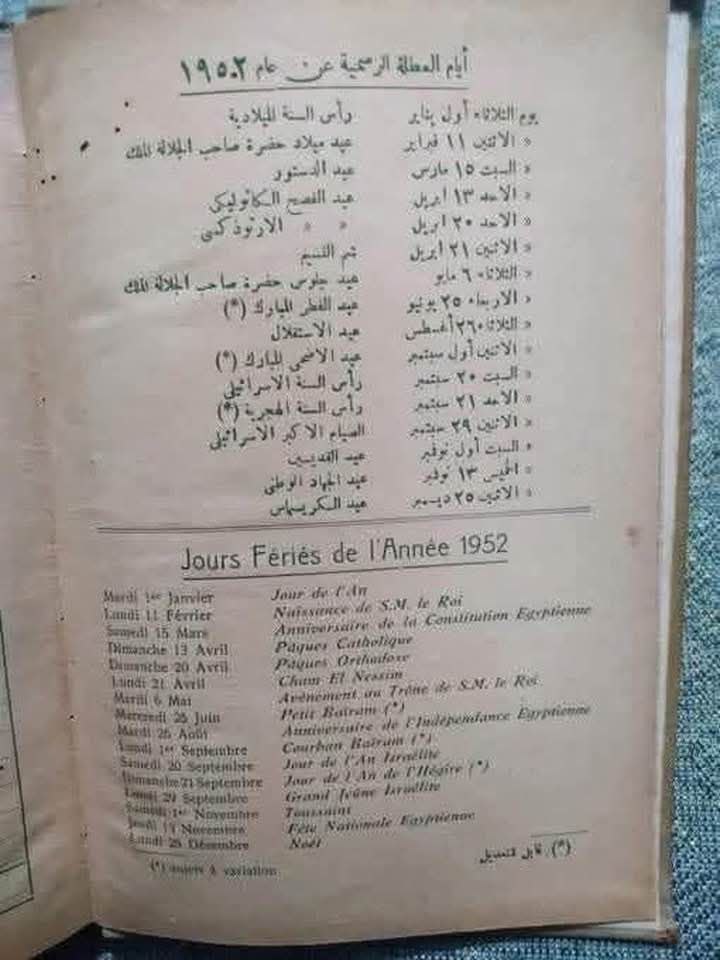 أيام العطلة الرسمية عن عام ١٩٥٢
يوم الثلاثاء أول يناير رأس السنة الميلادية
« الاثنين ١١ فبراير عيد ميلاد حضرة صاحب الجلالة الملك
« السبت ١٥ مارس عيد الدستور
« الاحد ١٣ ابريل عيد الفصح الكاثوليكى
« الاحد ٢٠ ابريل « « الارثوذكسى
« الاثنين ٢١ ابريل شم النسيم
« الثلاثاء ٦ مايو عيد جلوس حضرة صاحب الجلالة الملك
« الاربعاء ٢٥ يونيو عيد الفطر المبارك (*)
« الثلاثاء ٢٦ أغسطس عيد الاستقلال
« الاثنين أول سبتمبر عيد الاضحى المبارك (*)
« السبت ٢٠ سبتمبر رأس السنة الاسرائيلى
« الاحد ٢١ سبتمبر رأس السنة الهجرية (*)
« الاثنين ٢٩ سبتمبر الصيام الاكبر الاسرائيلى
« السبت أول نوفمبر عيد القديسين
« الخميس ١٣ نوفمبر عيد الجهاد الوطنى
« الاثنين ٢٥ ديسمبر عيد الكريسماس
Jours Fériés de l'Année 1952
Mardi 1er Janvier Jour de l'An
Lundi 11 Février Naissance de S.M. le Roi
Samedi 15 Mars Anniversaire de la Constitution Egyptienne
Dimanche 13 Avril Pâques Catholique
Dimanche 20 Avril Pâques Orthodoxe
Lundi 21 Avril Cham El Nessim
Mardi 6 Mai Avènement au Trône de S.M. le Roi
Mercredi 25 Juin Petit Baïram (*)
Mardi 26 Août Anniversaire de l'Indépendance Egyptienne
Lundi 1er Septembre Courban Baïram (*)
Samedi 20 Septembre Jour de l'An Israélite
Dimanche 21 Septembre Jour de l'An de l'Hégire (*)
Lundi 29 Septembre Grand Jeûne Israélite
Samedi 1er Novembre Toussaint
Jeudi 13 Novembre Fête Nationale Egyptienne
Lundi 25 Décembre Noël
(*) sujets à variation
(*) قابل للتعديل